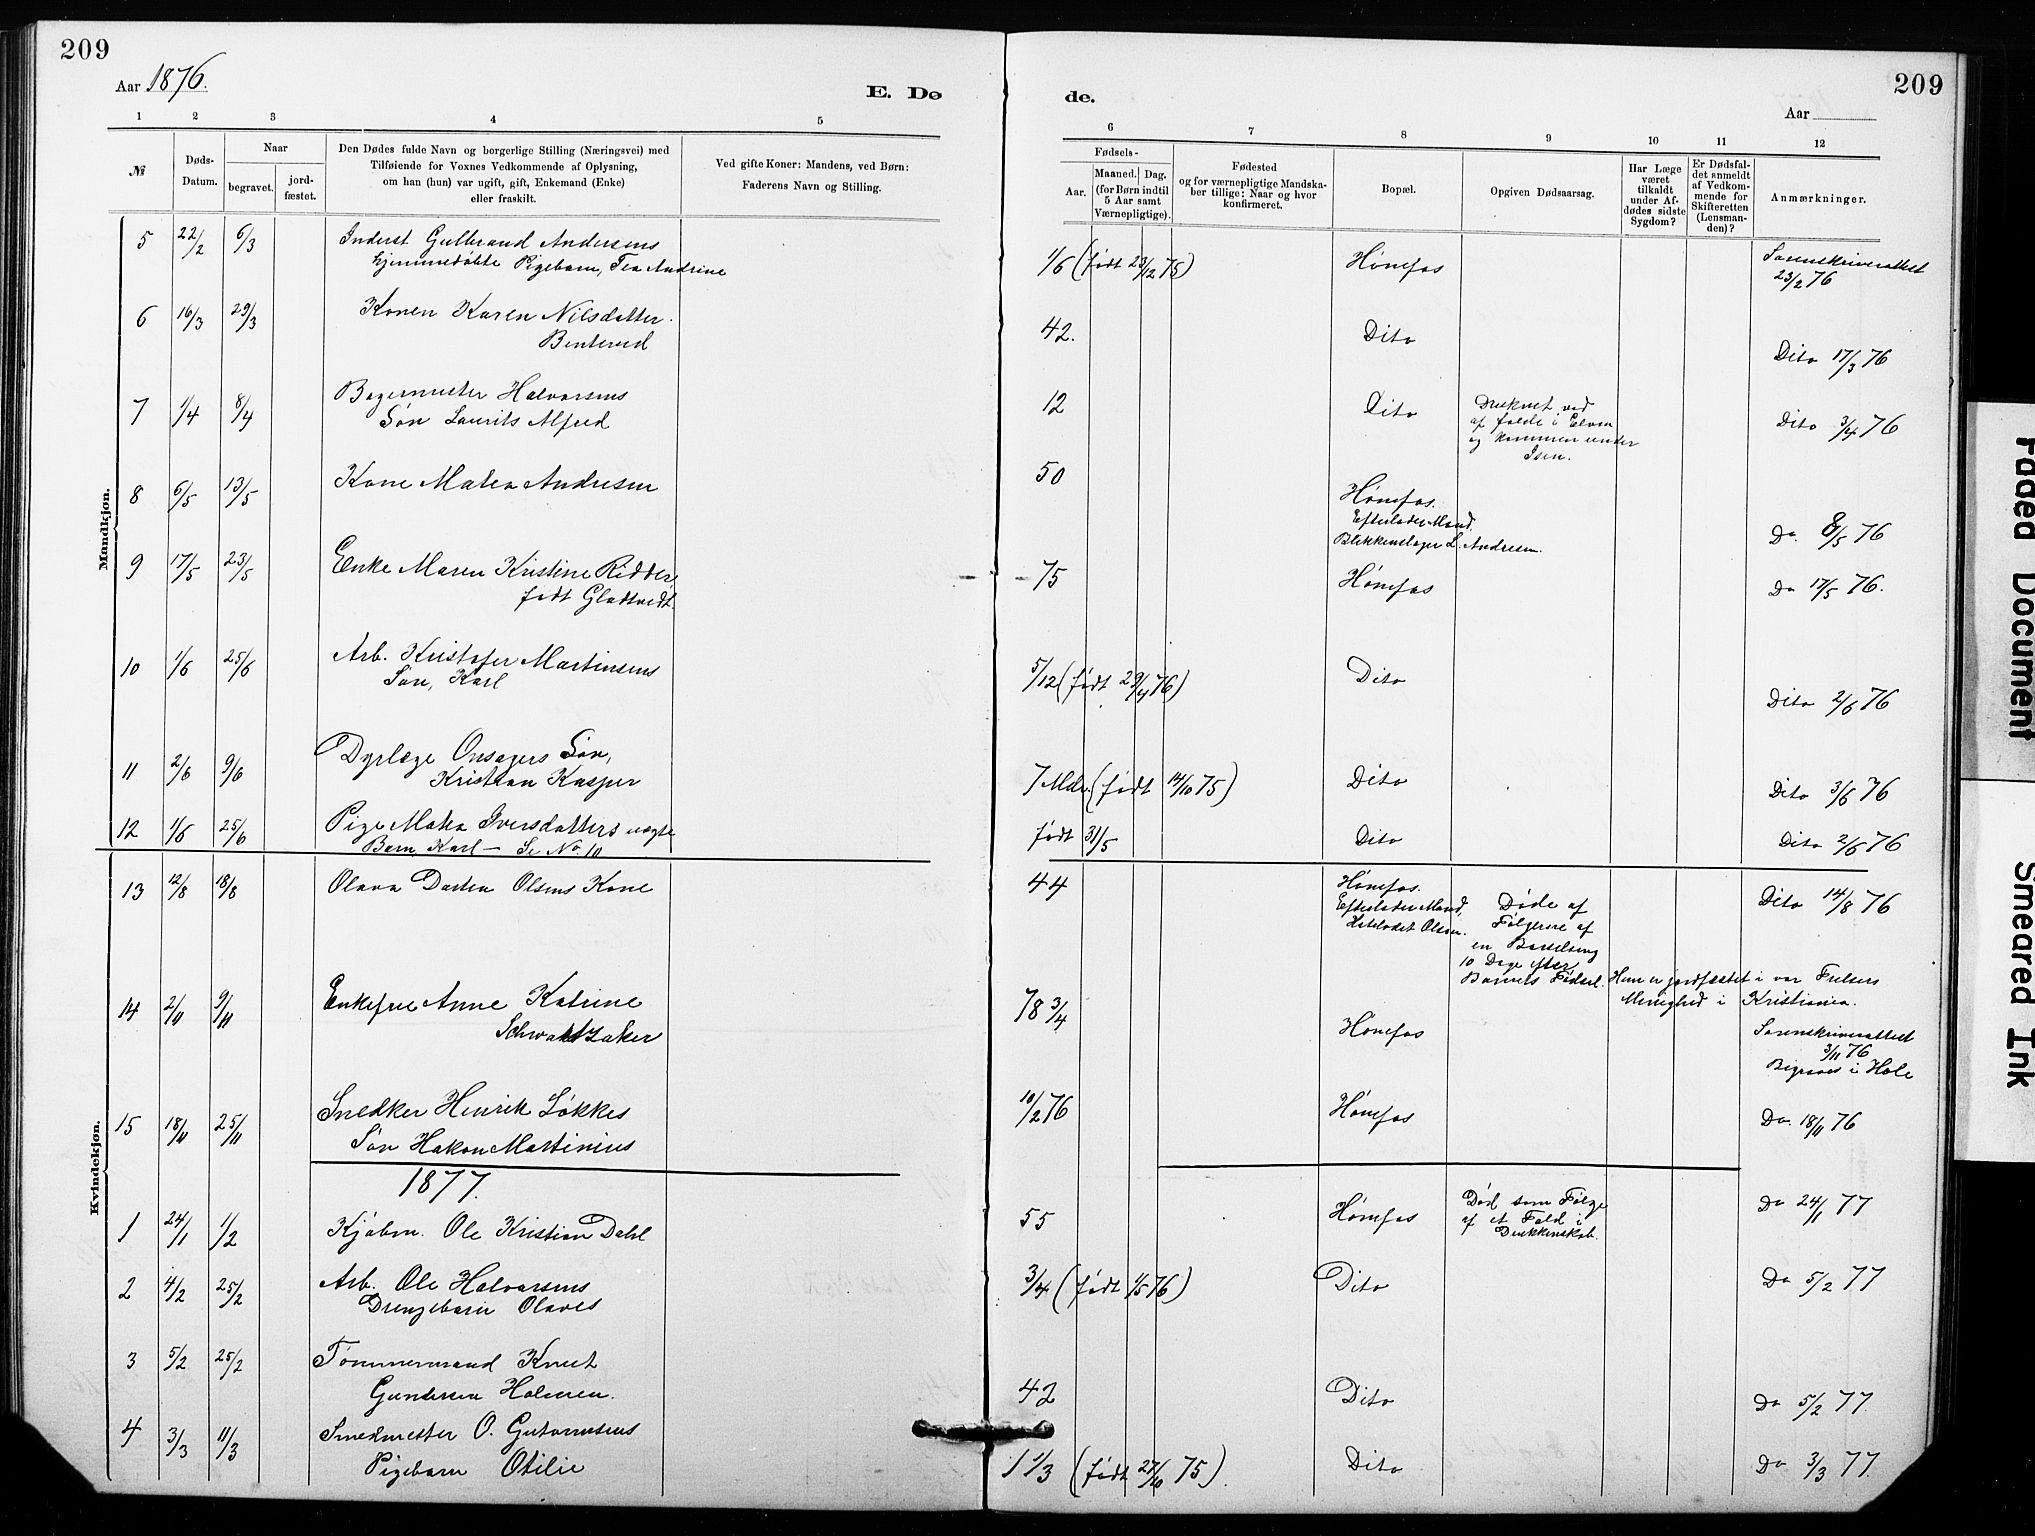 209
209
Aar 1876.
E. Dø
de.
Aar
1 2 3 4 5
6 7 8 9 10 11 12
№
Døds-Datum.
Naar
begravet.
jordfæstet.
Den Dødes fulde Navn og borgerlige Stilling (Næringsvei) med
Tilføiende for Voxnes Vedkommende af Oplysning,
om han (hun) var ugift, gift, Enkemand (Enke)
eller fraskilt.
Ved gifte Koner: Mandens, ved Børn:
Faderens Navn og Stilling.
Fødsels-
Aar.
Maaned. Dag.
(for Børn indtil
5 Aar samt
Værnepligtige).
Fødested
og for værnepligtige Mandska-
ber tillige: Naar og hvor
konfirmeret.
Bopæl.
Opgiven Dødsaarsag.
Har Læge
været
tilkaldt
under Af-
dødes sidste
Sygdom?
Er Dødsfal-
det anmeldt
af Vedkom-
mende for
Skifteretten
(Lensman-
den)?
Anmærkninger.
Mandkjøn.
Kvindekjøn.
5 22/2 6/3 Inderst Gulbrand Andersens
hjemmedøbte Pigebarn, Tea Andrine
1/6 (født 23/12 75) Hønefos Sorenskriverattest
23/2 76
6 16/3 29/3 Konen Karen Nilsdatter
42. Dito Dito 17/3 76
7 1/4 8/4 Bagermester Halvorsens
Søn Laurits Alfred
12 Dito Druknet ved
af falde i Elven
og kommen under
Isen.
Dito 3/4 76
8 6/5 13/5 Kone Matea Andresen
50 Hønefos.
Efterlader Mand.
Blikkenslager L. Andresen.
Do. 8/5 76
9 17/5 23/5 Enke Maren Kristine Ridder,
født Gladtvedt.
75 Hønefos Do 17/5 76.
10 1/6 25/6 Arb. Kristofer Martinsens
Søn, Karl
5/12 (født 29/4 76) Dito Dito 2/6 76
11 2/6 9/6 Dyrlæge Onsagers Søn,
Kristian Kasper
7 Mdr. (født 14/10 75) Dito Dito 3/6 76
12 1/6 25/6 Pige Matea Iversdatters uægte
Barn, Karl — Se No. 10
født 31/5 Dito Dito 2/6 76
13 12/8 18/8 Olava Dortea Olsens Kone
44 Hønefos.
Efterlader Mand,
Olsen.
Døde af
Følgerne af
en Barselseng
10 Dage efter
Barnets Fødsel.
Dito 14/8 76
Hun er jordfæstet i vor Frelsers
Menighed i Kristiania.
14 2/11 9/11 Enkefrue Anne Katrine
78 3/4 Hønefos Sorenskriverattest
3/11 76
Begraves i Hole
15 18/11 25/11 Snedker Henrik Løkkes
Søn Hakon Martinius
10/2 76 Hønefos Do. 18/11 76
1877.
1 24/1 1/2 Kjøbm. Ole Kristian Dahl
55 Hønefos Død som Følge
af et Fald i
Drukkenskab.
Do 24/1 77
2 4/2 25/2 Arb. Ole Halvorsens
Drengebarn Olaves
3/4 (født 1/5 76) Dito Do 5/2 77
3 5/2 25/2 Tømmermand Knut
Gundersen Holmen.
42 Dito Do 5/2 77.
4 3/3 11/3 Smedmester O. Gutormsens
Pigebarn Otilie
1 1/3 (født 27/10 75). Dito Do 3/3 77.
Faded Document
Smeared Ink